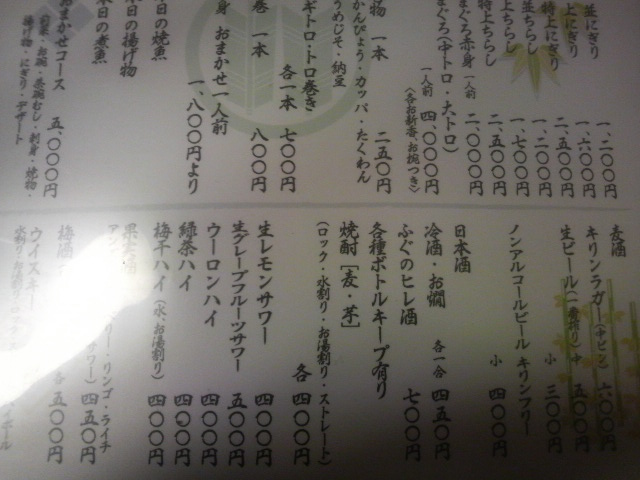 並にぎり 一、二〇〇円
上にぎり 一、六〇〇円
特上にぎり 二、五〇〇円
並ちらし 一、二〇〇円
上ちらし 一、七〇〇円
特上ちらし 二、五〇〇円
まぐろ赤身 一人前 二、〇〇〇円
まぐろ(中トロ・大トロ)
一人前 四、〇〇〇円
(各お新香、お椀つき)
物 一本 二五〇円
かんぴょう・カッパ・たくわん
うめじそ・納豆
ギトロ・トロ巻き
各一本 七〇〇円
巻 一本 八〇〇円
身 おまかせ一人前
一、八〇〇円より
日の焼魚
本日の揚げ物
本日の煮魚
おまかせコース 五、〇〇〇円
揚げ物・にぎり・デザート
麦酒
キリンラガー(中ビン) 六〇〇円
生ビール(一番搾り) 中 五〇〇円
小 三〇〇円
ノンアルコールビール キリンフリー
小 四〇〇円
日本酒
冷酒・お燗 各一合 四五〇円
ふぐのヒレ酒 七〇〇円
各種ボトルキープ有り
焼酎[麦・芋] 各 四〇〇円
(ロック・水割り・お湯割り・ストレート)
生レモンサワー 四〇〇円
生グレープフルーツサワー 五〇〇円
ウーロンハイ 四〇〇円
緑茶ハイ 四〇〇円
梅干ハイ(水、お湯割り) 四〇〇円
果実酒
リー・リンゴ・ライチ
サワー) 四五〇円
梅酒 各 五〇〇円
ウイスキー
水割り